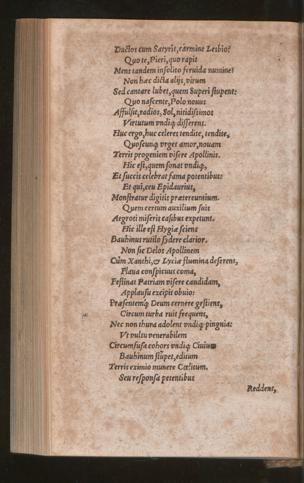 Ductos cum Satyris, carmine Lesbio?
Quo te, Pieri, quo rapit
Mens tandem insolito feruida numine?
Non hæc dicta alijs, virum
Sed cantare lubet, quem Superi stupent:
Quo nascente, Polo nouus
Affulsit, radios, Sol, nitidissimos
Virtutum vndiq; disserens.
Huc ergo, huc celeres tendite, tendite,
Quoscunq; vrget amor, nouam
Terris progeniem visere Apollinis.
Hic est, quem sonat vndiq;,
Et succis celebrat fama potentibus:
Et qui, ceu Epidaurius,
Monstratur digitis prætereuntium.
Quem certum auxilium suit
Aegroti miseris casibus expetunt.
Hic ille est Hygiæ sciens
Bauhinus rutilo sydere clarior.
Non sic Delos Apollinem
Cùm Xanthi, & Lyciæ flumina deserens,
Flaua conspicuus coma,
Festinat Patriam visere candidam,
Applausu excipit obuio:
Præsentemq; Deum cernere gestiens,
Circum turba ruit frequens,
Nec non thura adolent vndiq; pinguia:
Vt vultu venerabilem
Circumfusa cohors vndiq; Ciuium
Bauhinum stupet, editum
Terris eximio munere Cœlitum.
Seu responsa petentibus
Reddent,